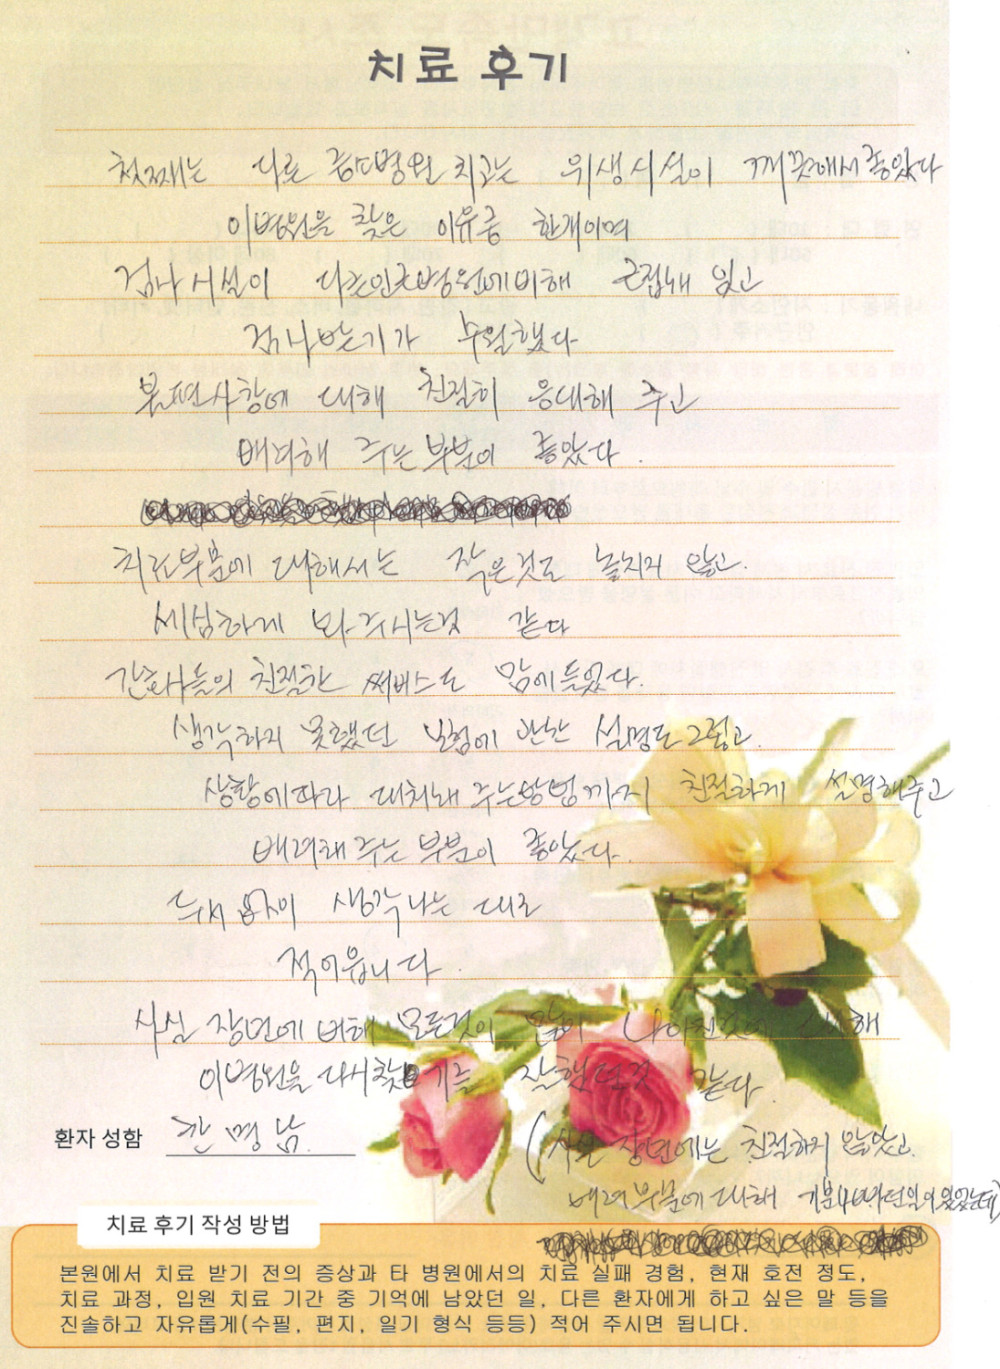 치료 후기
첫째는 다른 종합병원 치고는 위생시설이 깨끗해서 좋았다
이병원을 찾은 이유중 한개이며
검사시설이 다른인근병원에비해 근접해 있고
검사받기가 수월했다
불편사항에 대해 친절히 응대해 주고
배려해 주는 부분이 좋았다.
치료부분에 대해서는 작은것도 놓치지 않고.
세심하게 봐주시는것 같다
간호사들의 친절한 써비스도 맘에들었다.
생각하지 못했던 보험에 관한 설명도 그렇고.
상황에따라 대처해 주는방법까지 친절하게 설명해주고
배려해주는 부분이 좋았다.
두서 없이 생각나는 대로
적어봅니다.
사실 작년에 비해 모든것이 많이 나아진것에 대해
이병원을 다시찾기를 잘했던것 같다.
환자 성함 명남.
(사실 작년에는 친절하지 않았고.
배려 부분에 대해 기분나빴던일이 있었는데)
치료 후기 작성 방법
본원에서 치료 받기 전의 증상과 타 병원에서의 치료 실패 경험, 현재 호전 정도,
치료 과정, 입원 치료 기간 중 기억에 남았던 일, 다른 환자에게 하고 싶은 말 등을
진솔하고 자유롭게(수필, 편지, 일기 형식 등등) 적어 주시면 됩니다.